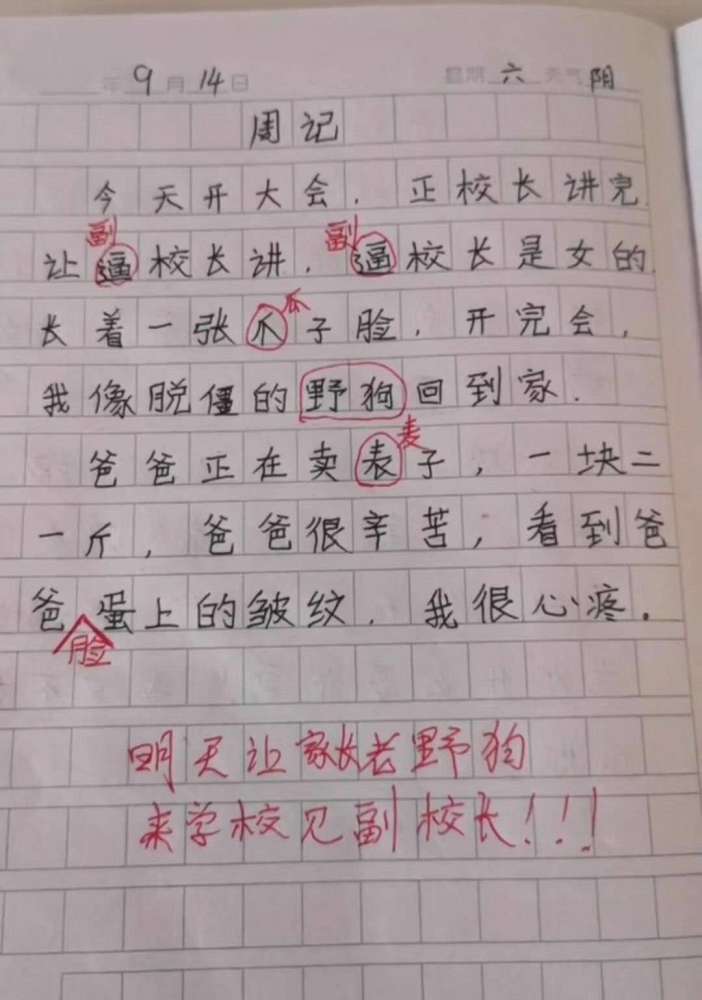 年 9月14日 星期 六 天气 阴
周记
今天开大会.正校长讲完
副 副
让逼校长讲.逼校长是女的
瓜
长着一张爪子脸.开完会,
我像脱僵的野狗回到家.
麦
爸爸正在卖表子,一块二
一斤,爸爸很辛苦,看到爸
爸蛋上的皱纹.我很心疼.
脸
明天让家长老野狗
来学校见副校长!!!